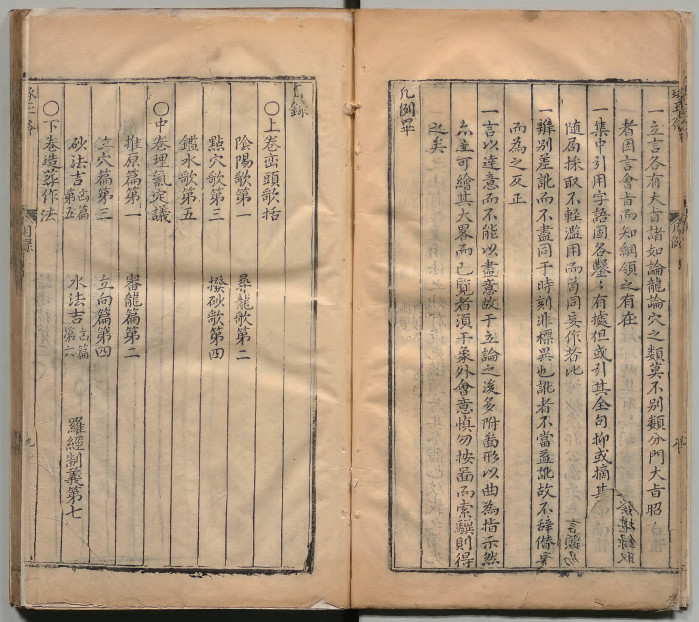 一立言各有大旨諸如論龍論穴之類莫不别類分門大旨昭
者因言會旨而知綱領之有在
一集中引用字語固各鑿〻有據但或引其全句抑或摘其
隨局採取不輕濫用而苟同妄作者此
一辨别差訛而不盡同于時刻非標異也訛者不當益訛故不辞僭妄
而為之反正
一言以達意而不能以盡意故于立論之後多附啚形以曲為指示然
亦空可繪其大畧而已覽者須于象外會意慎勿按啚而索驥則得
之矣
凡例畢
目錄
〇上卷巒頭歌括
陰陽歌第一 尋龍歌第二
點穴歌第三 撥砂歌第四
鑑水歌第五
〇中卷理氣定議
推原篇第一 審龍篇第二
立穴篇第三 立向篇第四
砂法吉凶篇第五 水法吉凶篇第六 羅經制義第七
〇下卷造葬作法
目錄
九